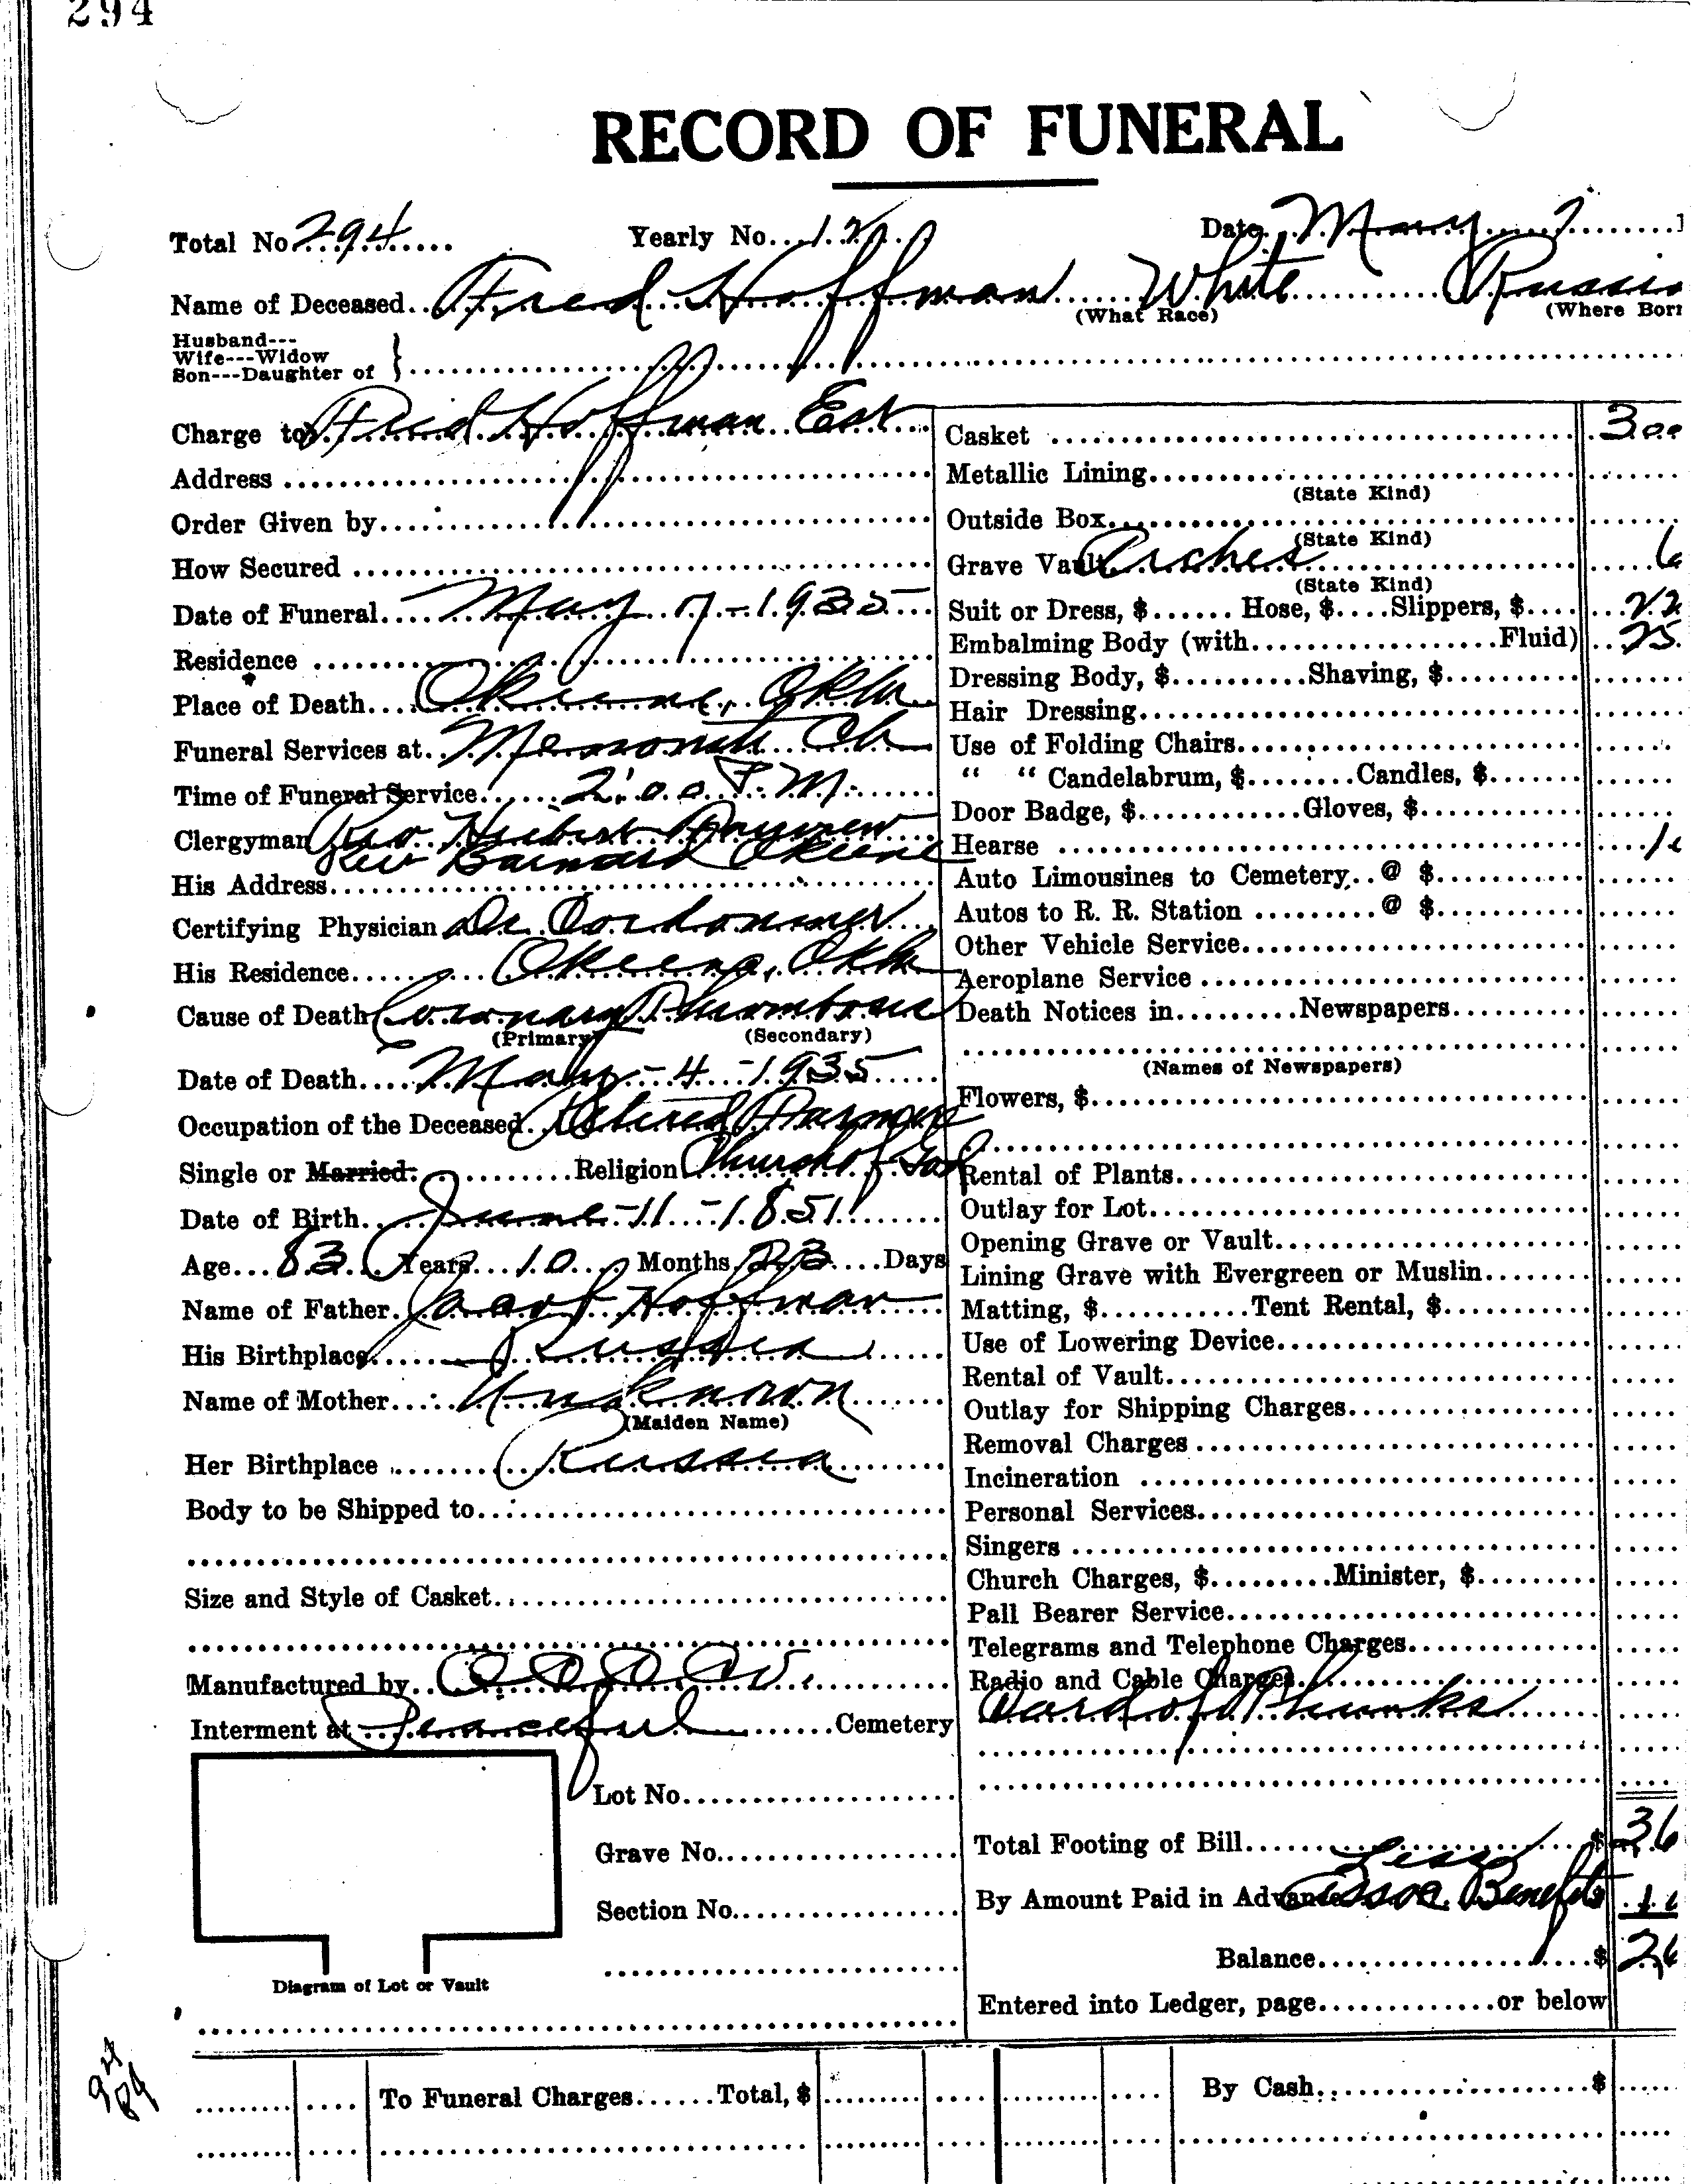 294
RECORD OF FUNERAL
Total No. 294 Yearly No. 12 Date May 7
Name of Deceased Fred Hoffman White Russia
(What Race) (Where Born
Husband---
Wife---Widow
Son---Daughter of }
Charge to Fred Hoffman Est
Address
Order Given by
How Secured
Date of Funeral May 7-1935
Residence
Place of Death Okeene, Okla
Funeral Services at Mennonite Ch
Time of Funeral Service 2:00 P.M.
Clergyman Rev. Hubert
Rev Barnard Okeene
His Address
Certifying Physician Dr.
His Residence Okeene, Okla
Cause of Death Coronary Thrombosis
(Primary) (Secondary)
Date of Death May-4-1935
Occupation of the Deceased Retired Farmer
Single or Married: Religion Church of God
Date of Birth June-11-1851
Age 83 Years 10 Months 23 Days
Name of Father Jacob Hoffman
His Birthplace Russia
Name of Mother Unknown
(Maiden Name)
Her Birthplace Russia
Body to be Shipped to
Size and Style of Casket
Manufactured by
Interment at Peaceful Cemetery
Lot No.
Grave No.
Section No.
Diagram of Lot or Vault
Casket 300
Metallic Lining
(State Kind)
Outside Box
(State Kind)
Grave Vault Arches 6
(State Kind)
Suit or Dress, $ Hose, $ Slippers, $ 22
Embalming Body (with Fluid) 25
Dressing Body, $ Shaving, $
Hair Dressing
Use of Folding Chairs
“ “ Candelabrum, $ Candles, $
Door Badge, $ Gloves, $
Hearse 1
Auto Limousines to Cemetery @ $
Autos to R. R. Station @ $
Other Vehicle Service
Aeroplane Service
Death Notices in Newspapers
(Names of Newspapers)
Flowers, $
Rental of Plants
Outlay for Lot
Opening Grave or Vault
Lining Grave with Evergreen or Muslin
Matting, $ Tent Rental, $
Use of Lowering Device
Rental of Vault
Outlay for Shipping Charges
Removal Charges
Incineration
Personal Services
Singers
Church Charges, $ Minister, $
Pall Bearer Service
Telegrams and Telephone Charges
Radio and Cable Charges
Card of Thanks
Total Footing of Bill $ 36
Less
By Amount Paid in Advance Assoc. Benefits 1
Balance $ 26
Entered into Ledger, page or below
To Funeral Charges Total, $ By Cash $